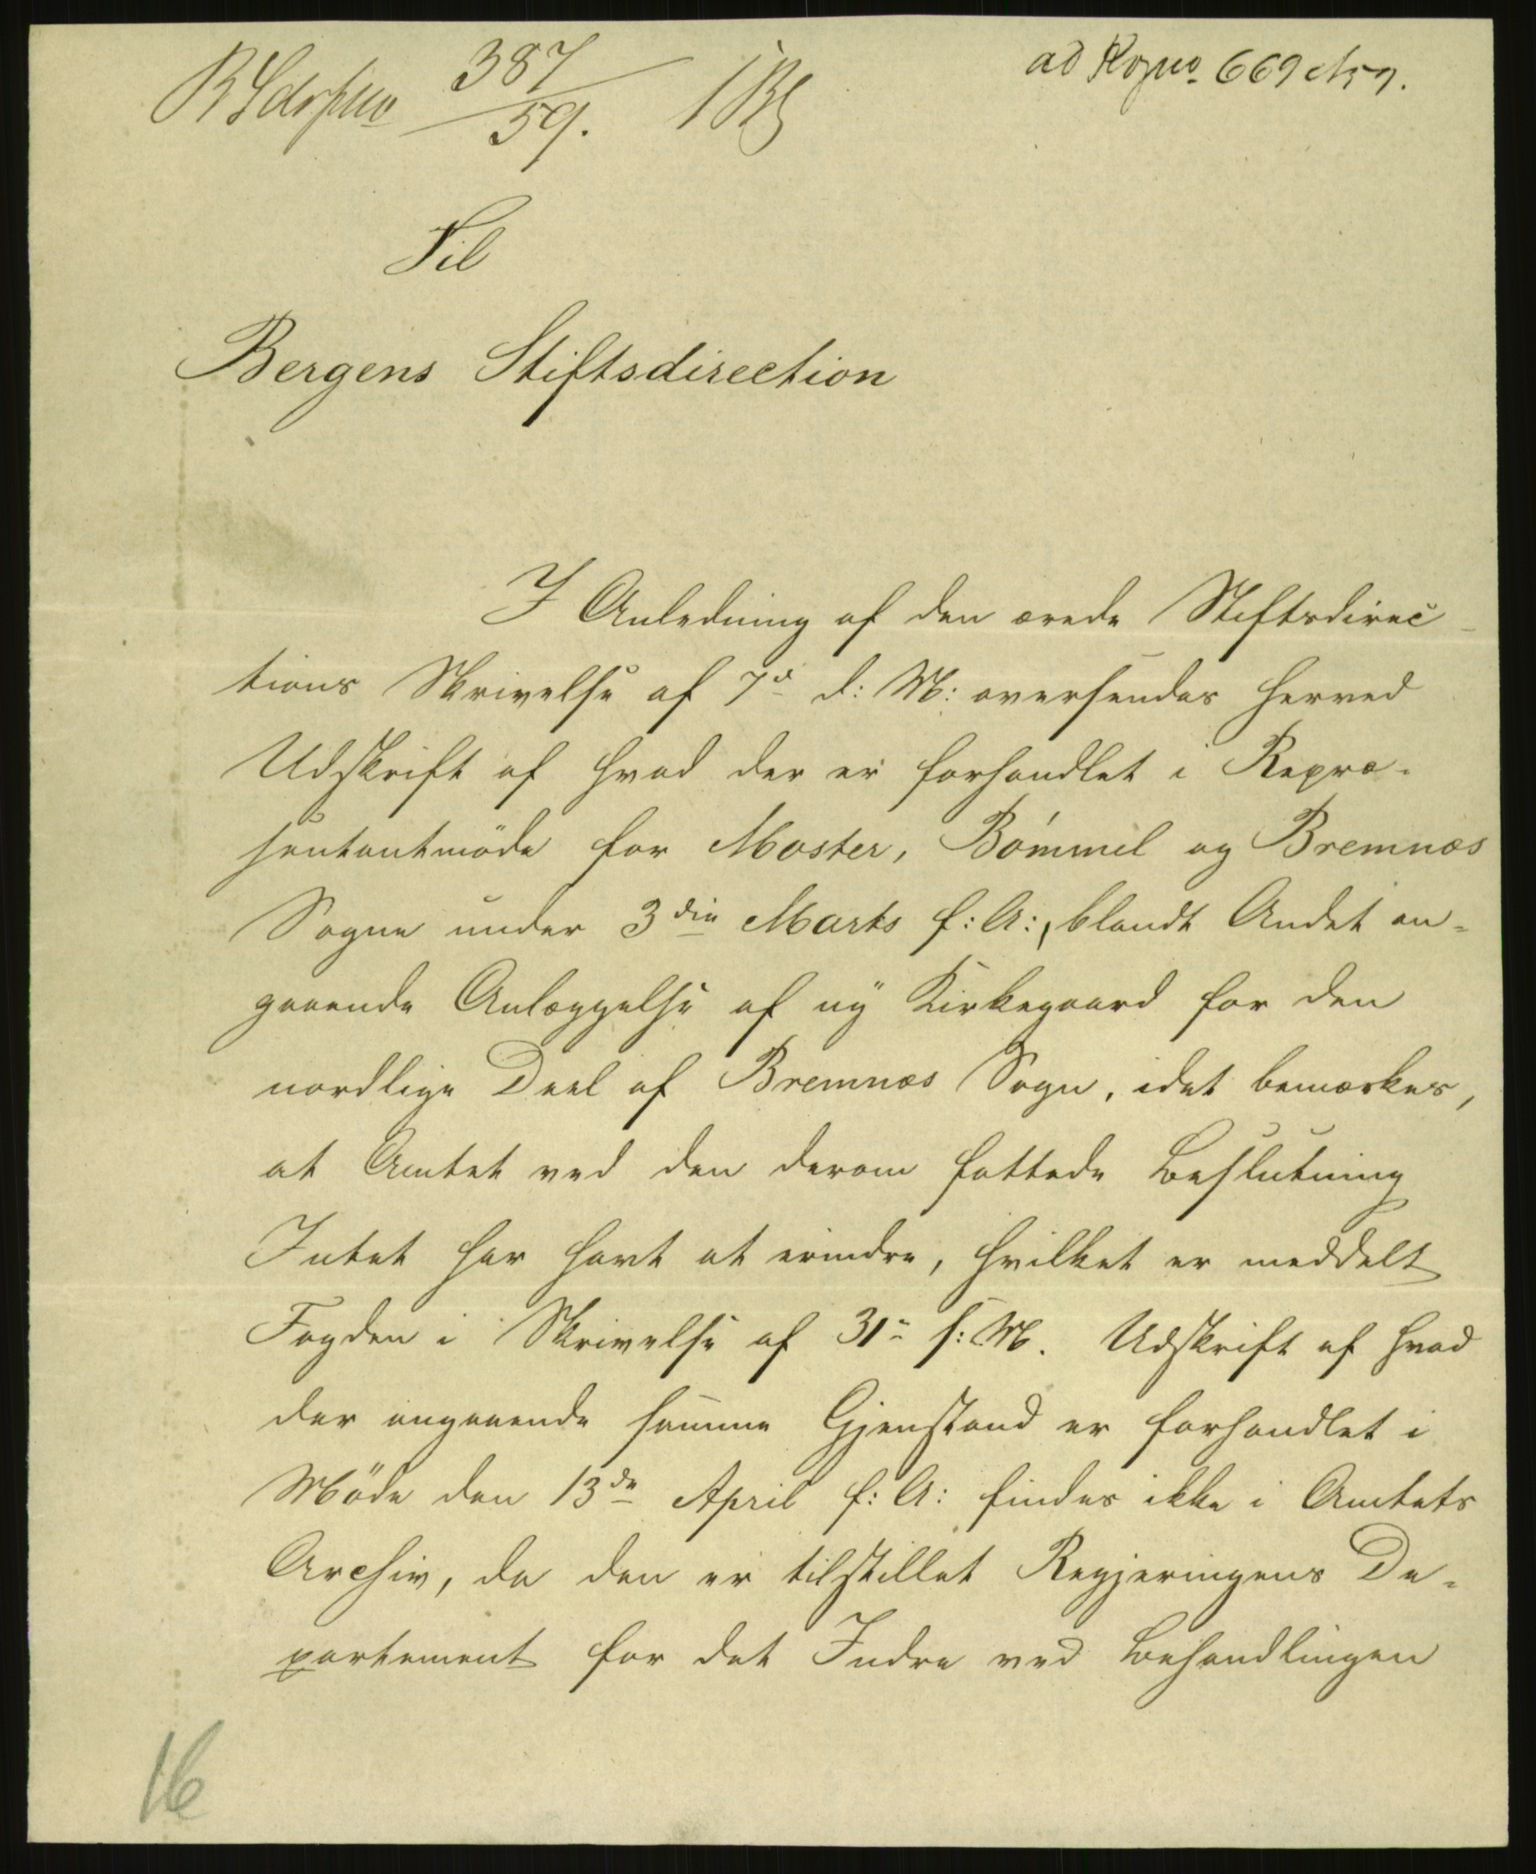 387
59.
ad 669
Til
Bergens Stiftsdirection
I Anledning af den ærede Stiftsdirec-
tions Skrivelse af 7d d: M: oversendes herved
Udskrift af hvad der er forhandlet i Repræ-
sentantmöde for Moster, Bömmel og Bremnæs
Sogne under 3die Marts f: A:, blandt Andet an-
gaaende Anlæggelse af ny Kirkegaard for den
nordlige Deel af Bremnæs Sogn, idet bemærkes,
at Amtet ved den derom fattede Beslutning
Intet har havt at erindre, hvilket er meddelt
Fogden i Skrivelse af 31- s: M. Udskrift af hvad
der angaaende samme Gjenstand er forhandlet i
Möde den 13de April f: A: findes ikke i Amtets
Archiv, da den er tilstillet Regjeringens De-
partement for det Indre ved Behandlingen
16